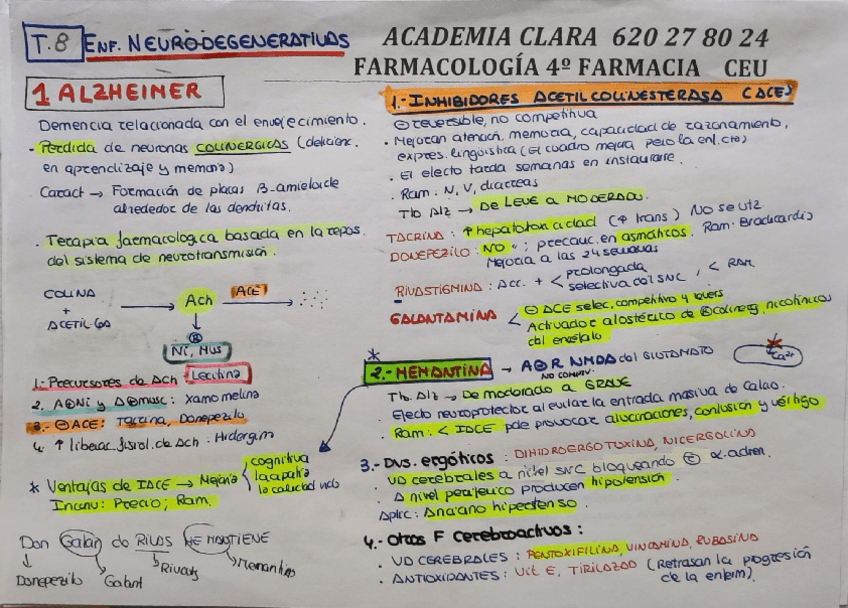 T.8 ENF. NEURODEGENERATIVAS
ACADEMIA CLARA 620 27 80 24
FARMACOLOGÍA 4º FARMACIA CEU
1 ALZHEIMER
Demencia relacionada con el envejecimiento.
· Perdida de neuronas COLINERGICAS (deficienc.
en aprendizaje y memoria)
Caract → Formación de placas β-amieloide
alrededor de las dendritas.
· Terapia farmacologica basada en la repos.
del sistema de neurotransmisión.
COLINA
+
ACETIL-CoA
Ach
ACE
R
Ni, Mus
1. Precursores de Ach · Lecitina
2. A⊕Ni y A⊕musc: Xamomelina
3. ⊖ACE: Tacrina, Donepezilo
4. ↑ liberac. fisiol. de Ach : Hidergina
* Ventajas de IACE → Mejoria
cognitiva
la apatia
la calidad vida
Inconv: Precio; Ram.
Don Galan do RIVAS MEMANTIENE
Donepezilo
Galant
Rivast
Memantina
1.- INHIBIDORES ACETILCOLINESTERASA (ACE)
⊖ reversible, no competitiva
· Mejoran atención, memoria, capacidad de razonamiento,
expres. lingüística (El cuadro mejora pero la enf. cte)
· El efecto tarda semanas en instaurarse.
· Ram: N, V, diarreas
Tto Alz → DE LEVE A MODERADO.
TACRINA: ↑ hepatotoxicidad (↑ trans) NO se utz
DONEPEZILO: NO "; precauc. en asmáticos. Ram: Bradicardia
Mejoria a las 24 semanas
RIVASTIGMINA: Acc. + < prolongada
selectiva del SNC, < RAM
GALANTAMINA < ⊖ ACE selec, competitivo y revers
Activador alostérico de colinerg. nicotínicos
*
2.- MEMANTINA → A⊖R NMDA del GLUTAMATO
NO COMPTIV.
Ca2+
Tto. Alz → De moderado a GRAVE
· Efecto neuroprotector al evitar la entrada masiva de Calcio.
· Ram: < IACE pde provocar alucinaciones, confusion y vértigo
3.- Dvs. ergóticos: DIHIDROERGOTOXINA, NICERGOLINA
· VD cerebrales a nivel SNC bloqueando R α-adren.
· A nivel periferico producen hipotensión.
Aplic: Anciano hipertenso.
4.- Otros F cerebroactivos:
· VD CEREBRALES : PENTOXIFILINA, VINCAMINA, RUBASINA
· ANTIOXIDANTES: Vit E, TIRILAZAD (Retrasan la progresión
de la enferm).